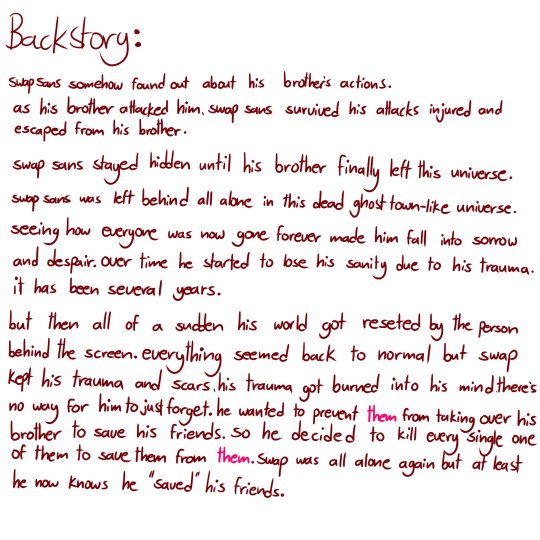 Backstory:
swap sans somehow found out about his brother's actions.
as his brother attacked him, swap sans survived his attacks injured and
escaped from his brother.
swap sans stayed hidden until his brother finally left this universe.
swap sans was left behind all alone in this dead ghost town-like universe.
seeing how everyone was now gone forever made him fall into sorrow
and despair. over time he started to lose his sanity due to his trauma.
it has been several years.
but then all of a sudden his world got reseted by the person
behind the screen. everything seemed back to normal but swap
kept his trauma and scars, his trauma got burned into his mind. there's
no way for him to just forget. he wanted to prevent them from taking over his
brother to save his friends. so he decided to kill every single one
of them to save them from them. swap was all alone again but at least
he now knows he "saved" his friends.